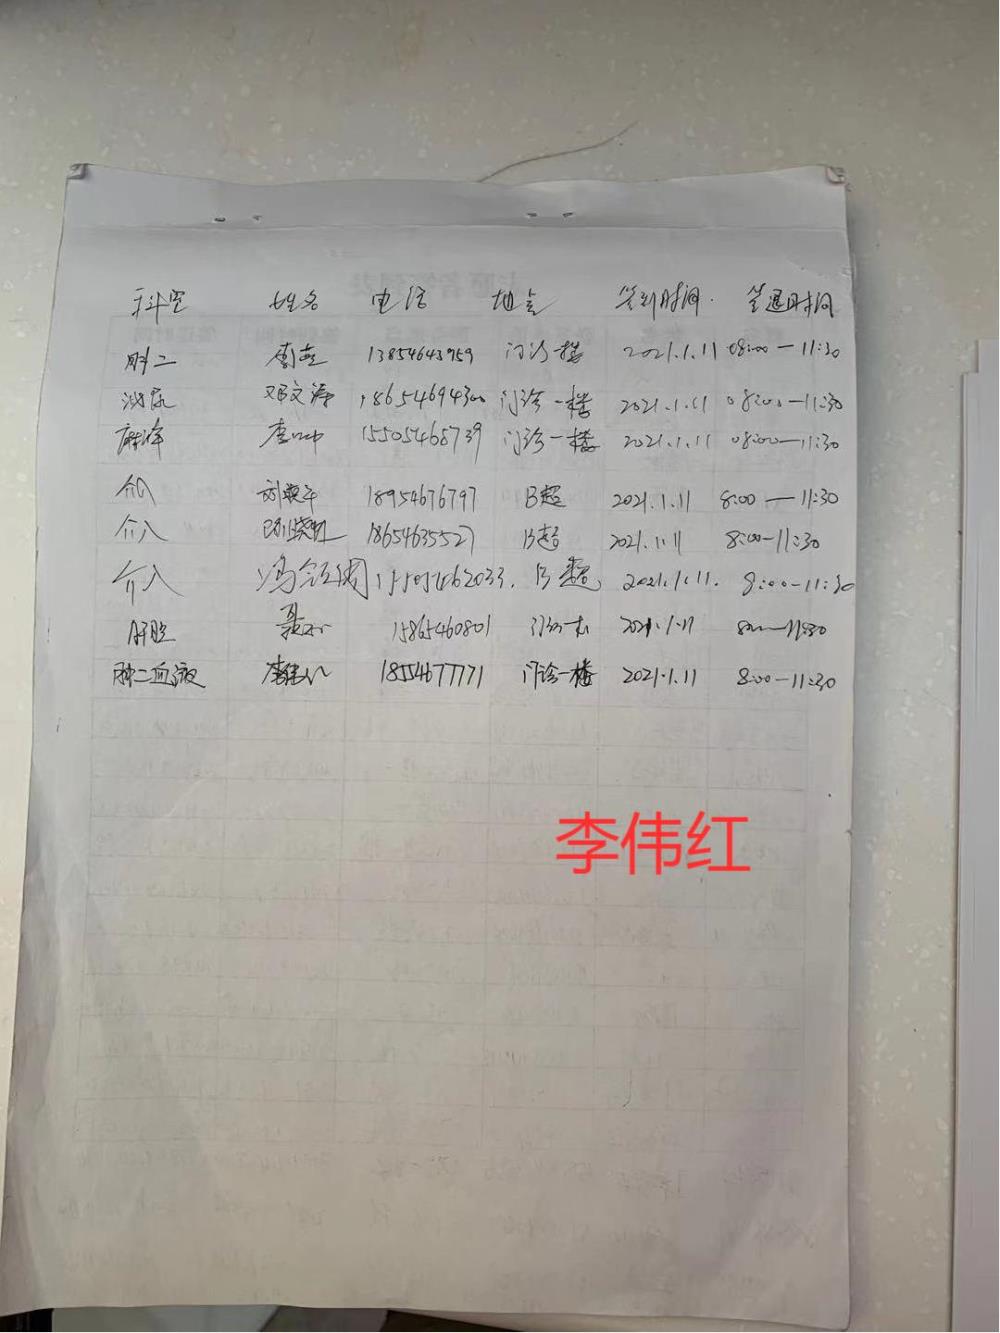 科室 姓名 电话 地点 签到时间 签退时间
肿二 13854643959 门诊楼 2021.1.11 08:00—11:30
泌尿 邓文涛 18654694300 门诊一楼 2021.1.11 08:00—11:30
麻醉 15505468739 门诊一楼 2021.1.11 08:00—11:30
介入 18954676797 B超 2021.1.11 8:00—11:30
介入 18654635527 B超 2021.1.11 8:00—11:30
介入 B超 2021.1.11. 8:00—11:30
肝胆 15865460801 2021.1.11 8:00—11:30
肿二血液 18554677771 门诊一楼 2021.1.11 8:00—11:30
李伟红